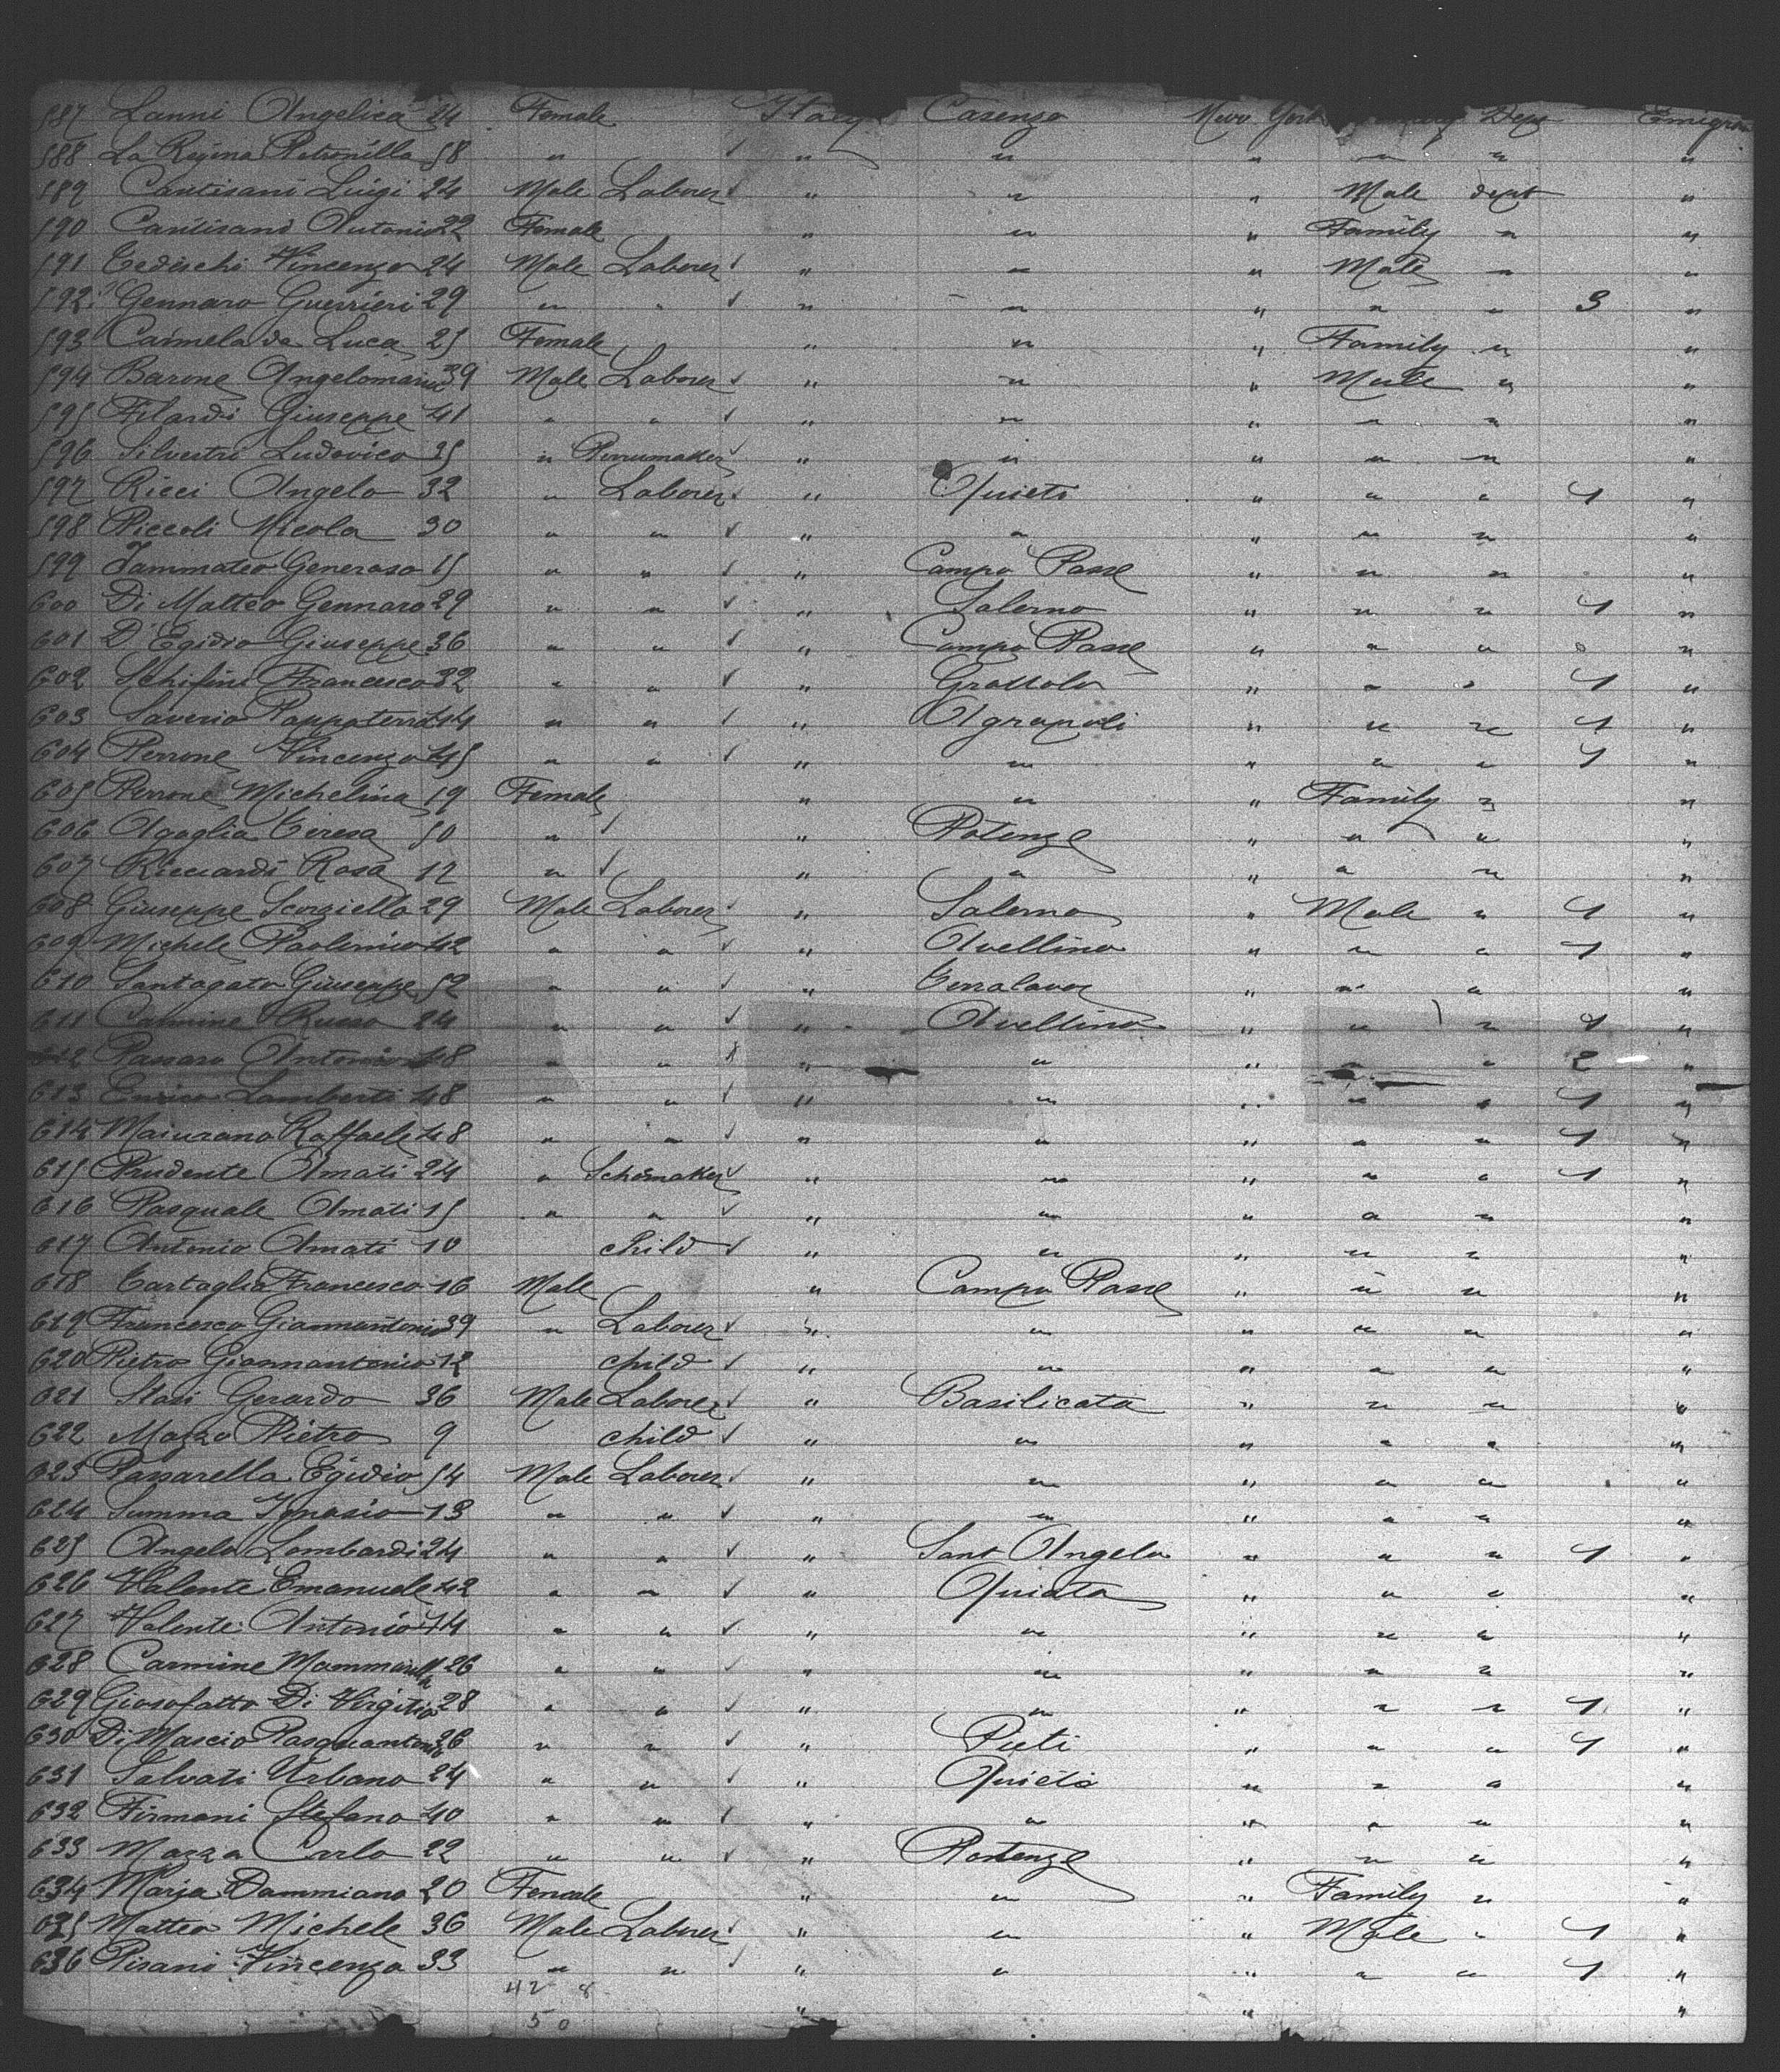 587 Lanni Angelica 24 Female Italy Cosenza New York Dept Emigra
588 La Regina Petronilla 58 " " " " " " "
589 Cantisani Luigi 24 Male Laborer " " " Male dept "
590 Cantisano Antonia 22 Female " " " Family " "
591 Tedeschi Vincenzo 24 Male Laborer " " " Male " "
592 Gennaro Guerrieri 29 " " " " " " " 3 "
593 Carmela de Luca 25 Female " " " Family " "
594 Barone Angelomaria 39 Male Laborer " " " Male " "
595 Filardi Giuseppe 41 " " " " " " " "
596 Silvestri Ludovico 35 " " " " " " "
597 Ricci Angelo 32 " Laborer " Quieti " " " 1 "
598 Piccoli Nicola 30 " " " " " " " "
599 Jammateo Generoso 15 " " " Campo Basse " " " "
600 Di Matteo Gennaro 29 " " " Salerno " " " 1 "
601 D'Egidio Giuseppe 36 " " " Campo Basse " " " "
602 Schifini Francesco 32 " " " Grottola " " " 1 "
603 Saverio Pappaterra 44 " " " Agropoli " " " 1 "
604 Perrone Vincenzo 45 " " " " " " " 1 "
605 Perrone Michelina 19 Female " " " Family " "
606 Agoglia Teresa 50 " " Potenza " " " "
607 Ricciardi Rosa 12 " " " " " " "
608 Giuseppe Scorziello 29 Male Laborer " Salerno " Male " 1 "
609 Michele Paolemico 42 " " " Avellino " " " 1 "
610 Santagata Giuseppe 52 " " " " " " "
611 Carmine Russo 24 " " " Avellino " " " 1 "
612 Passaro Antonio 48 " " " " " " " 2 "
613 Enrico Lamberti 48 " " " " " " " 1 "
614 Maiurano Raffaele 48 " " " " " " " 1 "
615 Prudente Amati 24 " Schomaker " " " " " 1 "
616 Pasquale Amati 15 " " " " " " " "
617 Antonio Amati 10 child " " " " " "
618 Tartaglia Francesco 16 Male " Campo Basse " " " "
619 Francesco Giannantonio 39 " Laborer " " " " " "
620 Pietro Giannantonio 12 child " " " " " "
621 Stasi Gerardo 36 Male Laborer " Basilicata " " " "
622 Mazzo Pietro 9 child " " " " " "
623 Passarella Egidio 54 Male Laborer " " " " " "
624 Summa Ignasio 13 " " " " " " " "
625 Angelo Lombardi 24 " " " Sant Angelo " " " 1 "
626 Valente Emanuele 42 " " " Quiata " " " "
627 Valente Antonio 44 " " " " " " " "
628 Carmine Mammarella 26 " " " " " " " "
629 Giosofatto Di Virgilio 28 " " " " " " " 1 "
630 Di Mascio Pasquantonio 26 " " " Pieti " " " 1 "
631 Salvati Urbano 24 " " " Quieti " " " "
632 Firmani Stefano 40 " " " " " " " "
633 Mazza Carlo 22 " " " Potenza " " " "
634 Maria Dammiano 20 Female " " " Family " "
635 Matteo Michele 36 Male Laborer " " " Male " 1 "
636 Pisani Vincenzo 33 " " " " " " " 1 "
42 8
" " "
50